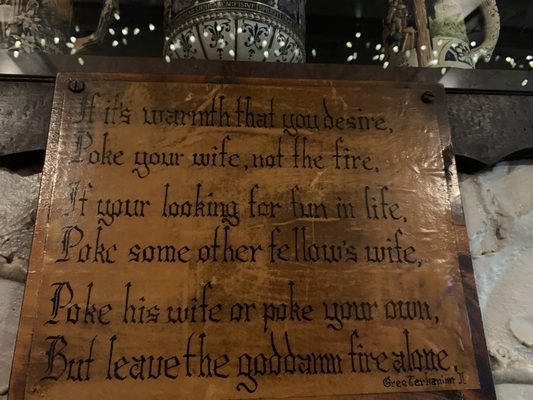 If it's warmth that you desire,
Poke your wife, not the fire.
If your looking for fun in life,
Poke some other fellow's wife,
Poke his wife or poke your own,
But leave the goddamn fire alone.